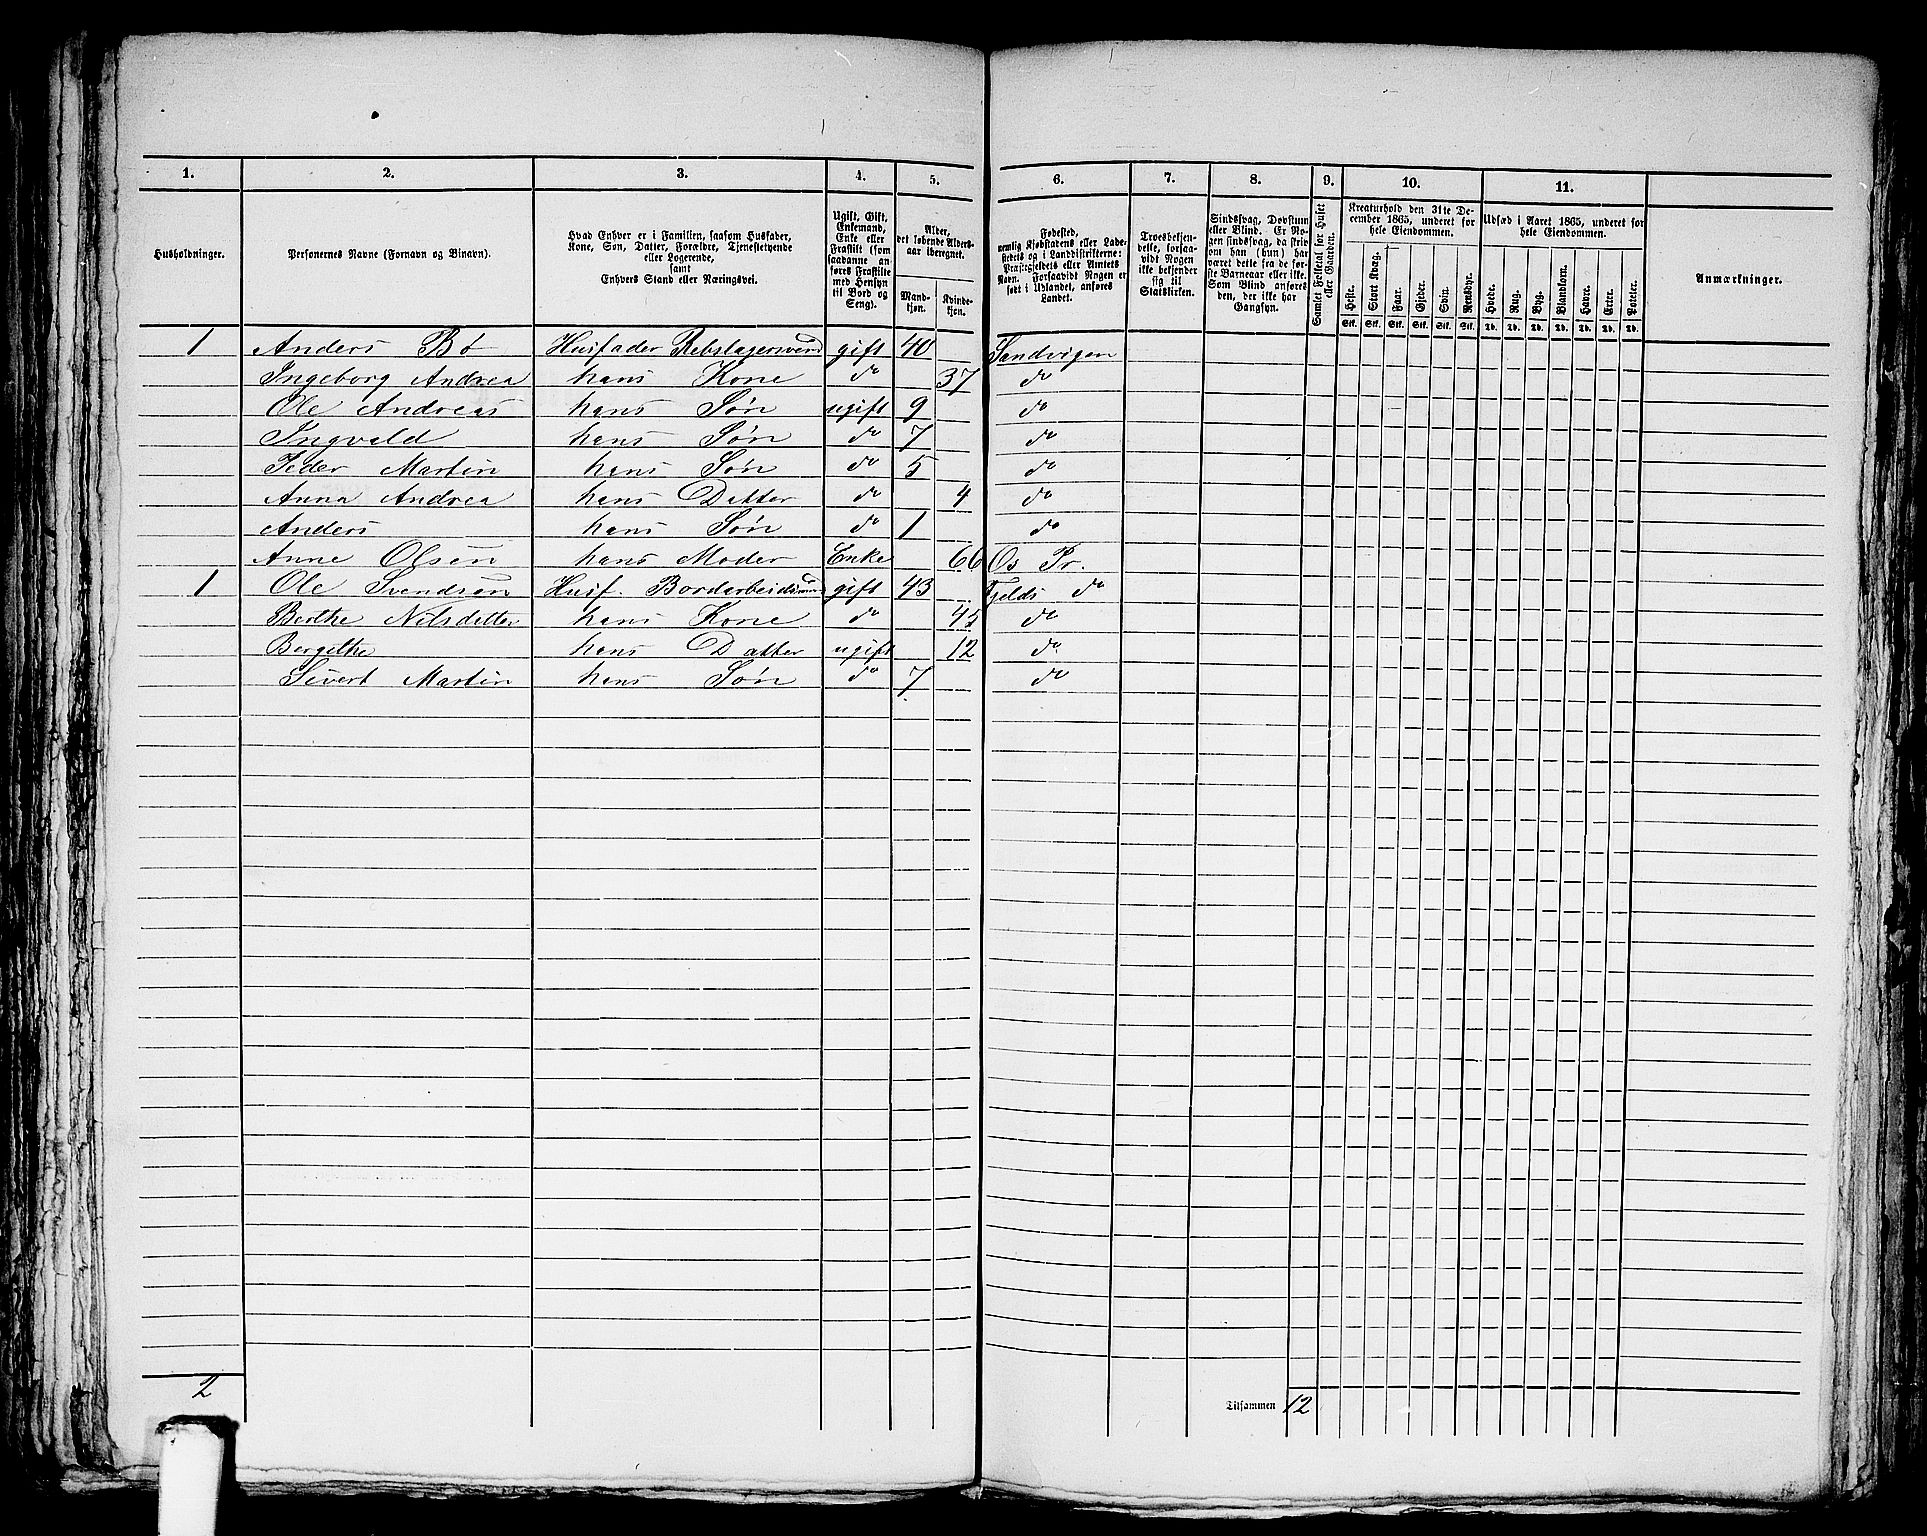 1. 2. 3. 4. 5. 6. 7. 8. 9. 10. 11.
Husholdninger.
Personernes Navne (Fornavn og Binavn).
Hvad Enhver er i Familien, saasom Husfader, Kone, Søn, Datter, Forældre, Tjenestetyende eller Logerende, samt Enhvers Stand eller Næringsvei.
Ugift, Gift, Enkemand, Enke eller Fraskilt (som saadanne anføres Fraskilte med Hensyn til Bord og Seng).
Alder, det løbende Aldersaar iberegnet.
Mandkjøn. Kvindekjøn.
Fødested, nemlig Kjøbstadens eller Ladestedets og i Landdistrikterne: Præstegjeldets eller Amtets Navn. Forsaavidt Nogen er født i Udlandet, anføres Landet.
Troesbekjendelse, forsaavidt Nogen ikke bekjender sig til Statskirken.
Sindssvag, Døvstum eller Blind. Er Nogen sindssvag, da skrives om han (hun) har været dette fra de første Barneaar eller ikke. Som Blind anføres den, der ikke har Gangsyn.
Samlet Folketal for Huset eller Gaarden.
Kreaturhold den 31te December 1865, underet for hele Eiendommen.
Heste. Stort Kvæg. Faar. Gjeder. Svin. Rensdyr.
Stk. Stk. Stk. Stk. Stk. Stk.
Udsæd i Aaret 1865, underet for hele Eiendommen.
Hvede. Rug. Byg. Blandkorn. Havre. Erter. Poteter.
Td. Td. Td. Td. Td. Td. Td.
Anmærkninger.
1 Anders Bø Husfader Rebslagersvend gift 40 Sandvigen
Ingeborg Andrea hans Kone do 37 do
Ole Andreas hans Søn ugift 9 do
Ingvald hans Søn do 7 do
Peder Martin hans Søn do 5 do
Anna Andrea hans Datter do 4 do
Anders hans Søn do 1 do
Anne Olsen hans Moder Enke 66 Os Pr.
1 Ole Svendsen Husf. Bordarbeidsmand gift 43 Fjelds do
Berthe Nilsdatter hans Kone do 45 do
Bergithe hans Datter ugift 12 do
Sivert Martin hans Søn do 7 do
2
Tilsammen 12